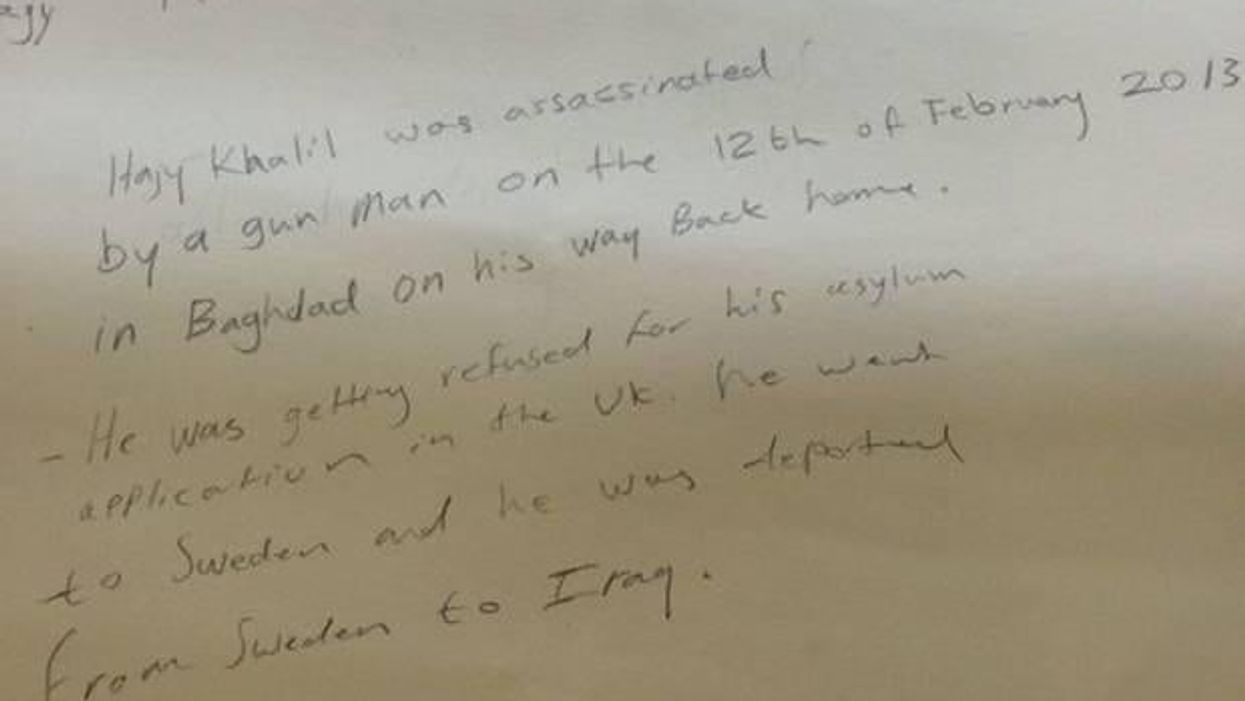 Hajy Khalil was assassinated
by a gun man on the 12th of February 2013
in Baghdad on his way Back home.
- He was getting refused for his asylum
application in the UK. he went
to Sweden and he was deported
from Sweden to Iraq.